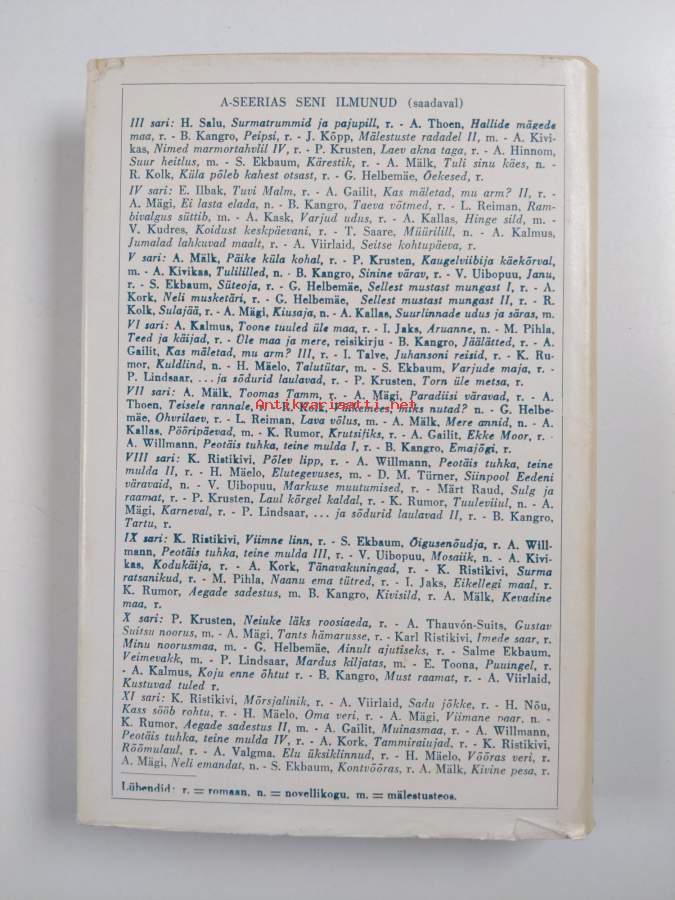 A-SEERIAS SENI ILMUNUD (saadaval)
III sari: H. Salu, Surmatrummid ja pajupill, r. - A. Thoen, Hallide mägede
maa, r. - B. Kangro, Peipsi, r. - J. Kõpp, Mälestuste radadel II, m. - A. Kivi-
kas, Nimed marmortahvlil IV, r. - P. Krusten, Laev akna taga, r. - A. Hinnom,
Suur heitlus, m. - S. Ekbaum, Kärestik, r. - A. Mälk, Tuli sinu käes, n. -
R. Kolk, Küla põleb kahest otsast, r. - G. Helbemäe, Õekesed, r.
IV sari: E. Ilbak, Tuvi Malm, r. - A. Gailit, Kas mäletad, mu arm? II, r. -
A. Mägi, Ei lasta elada, n. - B. Kangro, Taeva võtmed, r. - L. Reiman, Ram-
bivalgus süttib, m. - A. Kask, Varjud udus, r. - A. Kallas, Hinge sild, m. -
V. Kudres, Koidust keskpäevani, r. - T. Saare, Müürilill, n. - A. Kalmus,
Jumalad lahkuvad maalt, r. - A. Viirlaid, Seitse kohtupäeva, r.
V sari: A. Mälk, Päike küla kohal, r. - P. Krusten, Kaugelviibija käekõrval,
m. - A. Kivikas, Tulililled, n. - B. Kangro, Sinine värav, r. - V. Uibopuu, Janu,
r. - S. Ekbaum, Süteoja, r. - G. Helbemäe, Sellest mustast mungast I, r. - A.
Kork, Neli musketäri, r. - G. Helbemäe, Sellest mustast mungast II, r. - R.
Kolk, Sulajää, r. - A. Mägi, Kiusaja, n. - A. Kallas, Suurlinnade udus ja säras, m.
VI sari: A. Kalmus, Toone tuuled üle maa, r. - I. Jaks, Aruanne, n. - M. Pihla,
Teed ja käijad, r. - Üle maa ja mere, reisikirju - B. Kangro, Jäälätted, r. - A.
Gailit, Kas mäletad, mu arm? III, r. - I. Talve, Juhansoni reisid, r. - K. Ru-
mor, Kuldlind, n. - H. Mäelo, Talutütar, m. - S. Ekbaum, Varjude maja, r. -
P. Lindsaar, . . . ja sõdurid laulavad, r. - P. Krusten, Torn üle metsa, r.
VII sari: A. Mälk, Toomas Tamm, r. - A. Mägi, Paradiisi väravad, r. - A.
Thoen, Teisele rannale, n. - R. Kolk, Väikemees, miks nutad? n. - G. Helbe-
mäe, Ohvrilaev, r. - L. Reiman, Lava võlus, m. - A. Mälk, Mere annid, n. - A.
Kallas, Pööripäevad, m. - K. Rumor, Krutsifiks, r. - A. Gailit, Ekke Moor, r. -
A. Willmann, Peotäis tuhka, teine mulda I, r. - B. Kangro, Emajõgi, r.
VIII sari: K. Ristikivi, Põlev lipp, r. - A. Willmann, Peotäis tuhka, teine
mulda II, r. - H. Mäelo, Elutegevuses, m. - D. M. Türner, Siinpool Eedeni
väravaid, n. - V. Uibopuu, Markuse muutumised, r. - Märt Raud, Sulg ja
raamat, r. - P. Krusten, Laul kõrgel kaldal, r. - K. Rumor, Tuuleviiul, n. - A.
Mägi, Karneval, r. - P. Lindsaar, . . . ja sõdurid laulavad II, r. - B. Kangro,
Tartu, r.
IX sari: K. Ristikivi, Viimne linn, r. - S. Ekbaum, Õigusenõudja, r. A. Will-
mann, Peotäis tuhka, teine mulda III, r. - V. Uibopuu, Mosaiik, n. - A. Kivi-
kas, Kodukäija, r. - A. Kork, Tänavakuningad, r. - K. Ristikivi, Surma
ratsanikud, r. - M. Pihla, Naanu ema tütred, r. - I. Jaks, Eikellegi maal, r.
K. Rumor, Aegade sadestus, m. B. Kangro, Kivisild, r. A. Mälk, Kevadine
maa, r.
X sari: P. Krusten, Neiuke läks roosiaeda, r. - A. Thauvón-Suits, Gustav
Suitsu noorus, m. - A. Mägi, Tants hämarusse, r. - Karl Ristikivi, Imede saar, r.
Minu noorusmaa, m. - G. Helbemäe, Ainult ajutiseks, r. - Salme Ekbaum,
Veimevakk, m. - P. Lindsaar, Mardus kiljatas, m. - E. Toona, Puuingel, r.
- A. Kalmus, Koju enne õhtut r. - B. Kangro, Must raamat, r. - A. Viirlaid,
Kustuvad tuled r.
XI sari: K. Ristikivi, Mõrsjalinik, r. - A. Viirlaid, Sadu jõkke, r. - H. Nõu,
Kass sööb rohtu, r. - H. Mäelo, Oma veri, r. - A. Mägi, Viimane paar, n. -
K. Rumor, Aegade sadestus II, m. - A. Gailit, Muinasmaa, r. - A. Willmann,
Peotäis tuhka, teine mulda IV, r. - A. Kork, Tammiraiujad, r. - K. Ristikivi,
Rõõmulaul, r. - A. Valgma. Elu üksiklinnud, r. - H. Mäelo, Võõras veri, r.
A. Mägi, Neli emandat, n. - S. Ekbaum, Kontvõõras, r. A. Mälk, Kivine pesa, r.
Lühendid: r. = romaan, n. = novellikogu, m. = mälestusteos.
Antikvariaatti.net